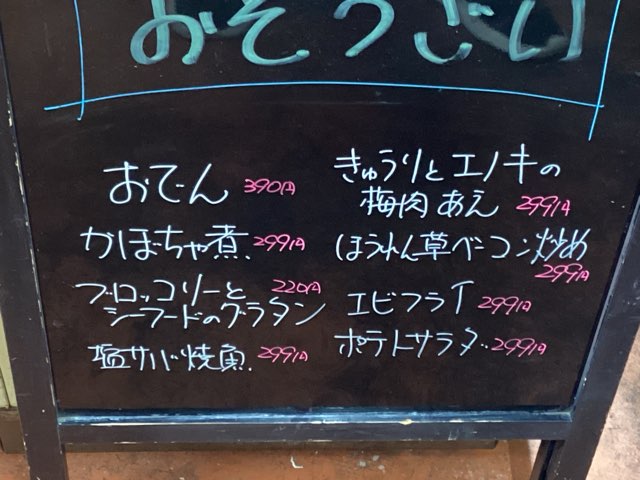 おそうざい
おでん 390円
かぼちゃ煮 299円
ブロッコリーと 220円
シーフードのグラタン
塩サバ焼魚 299円
きゅうりとエノキの
梅肉あえ 299円
ほうれん草ベーコン炒め
299円
エビフライ 299円
ポテトサラダ 299円